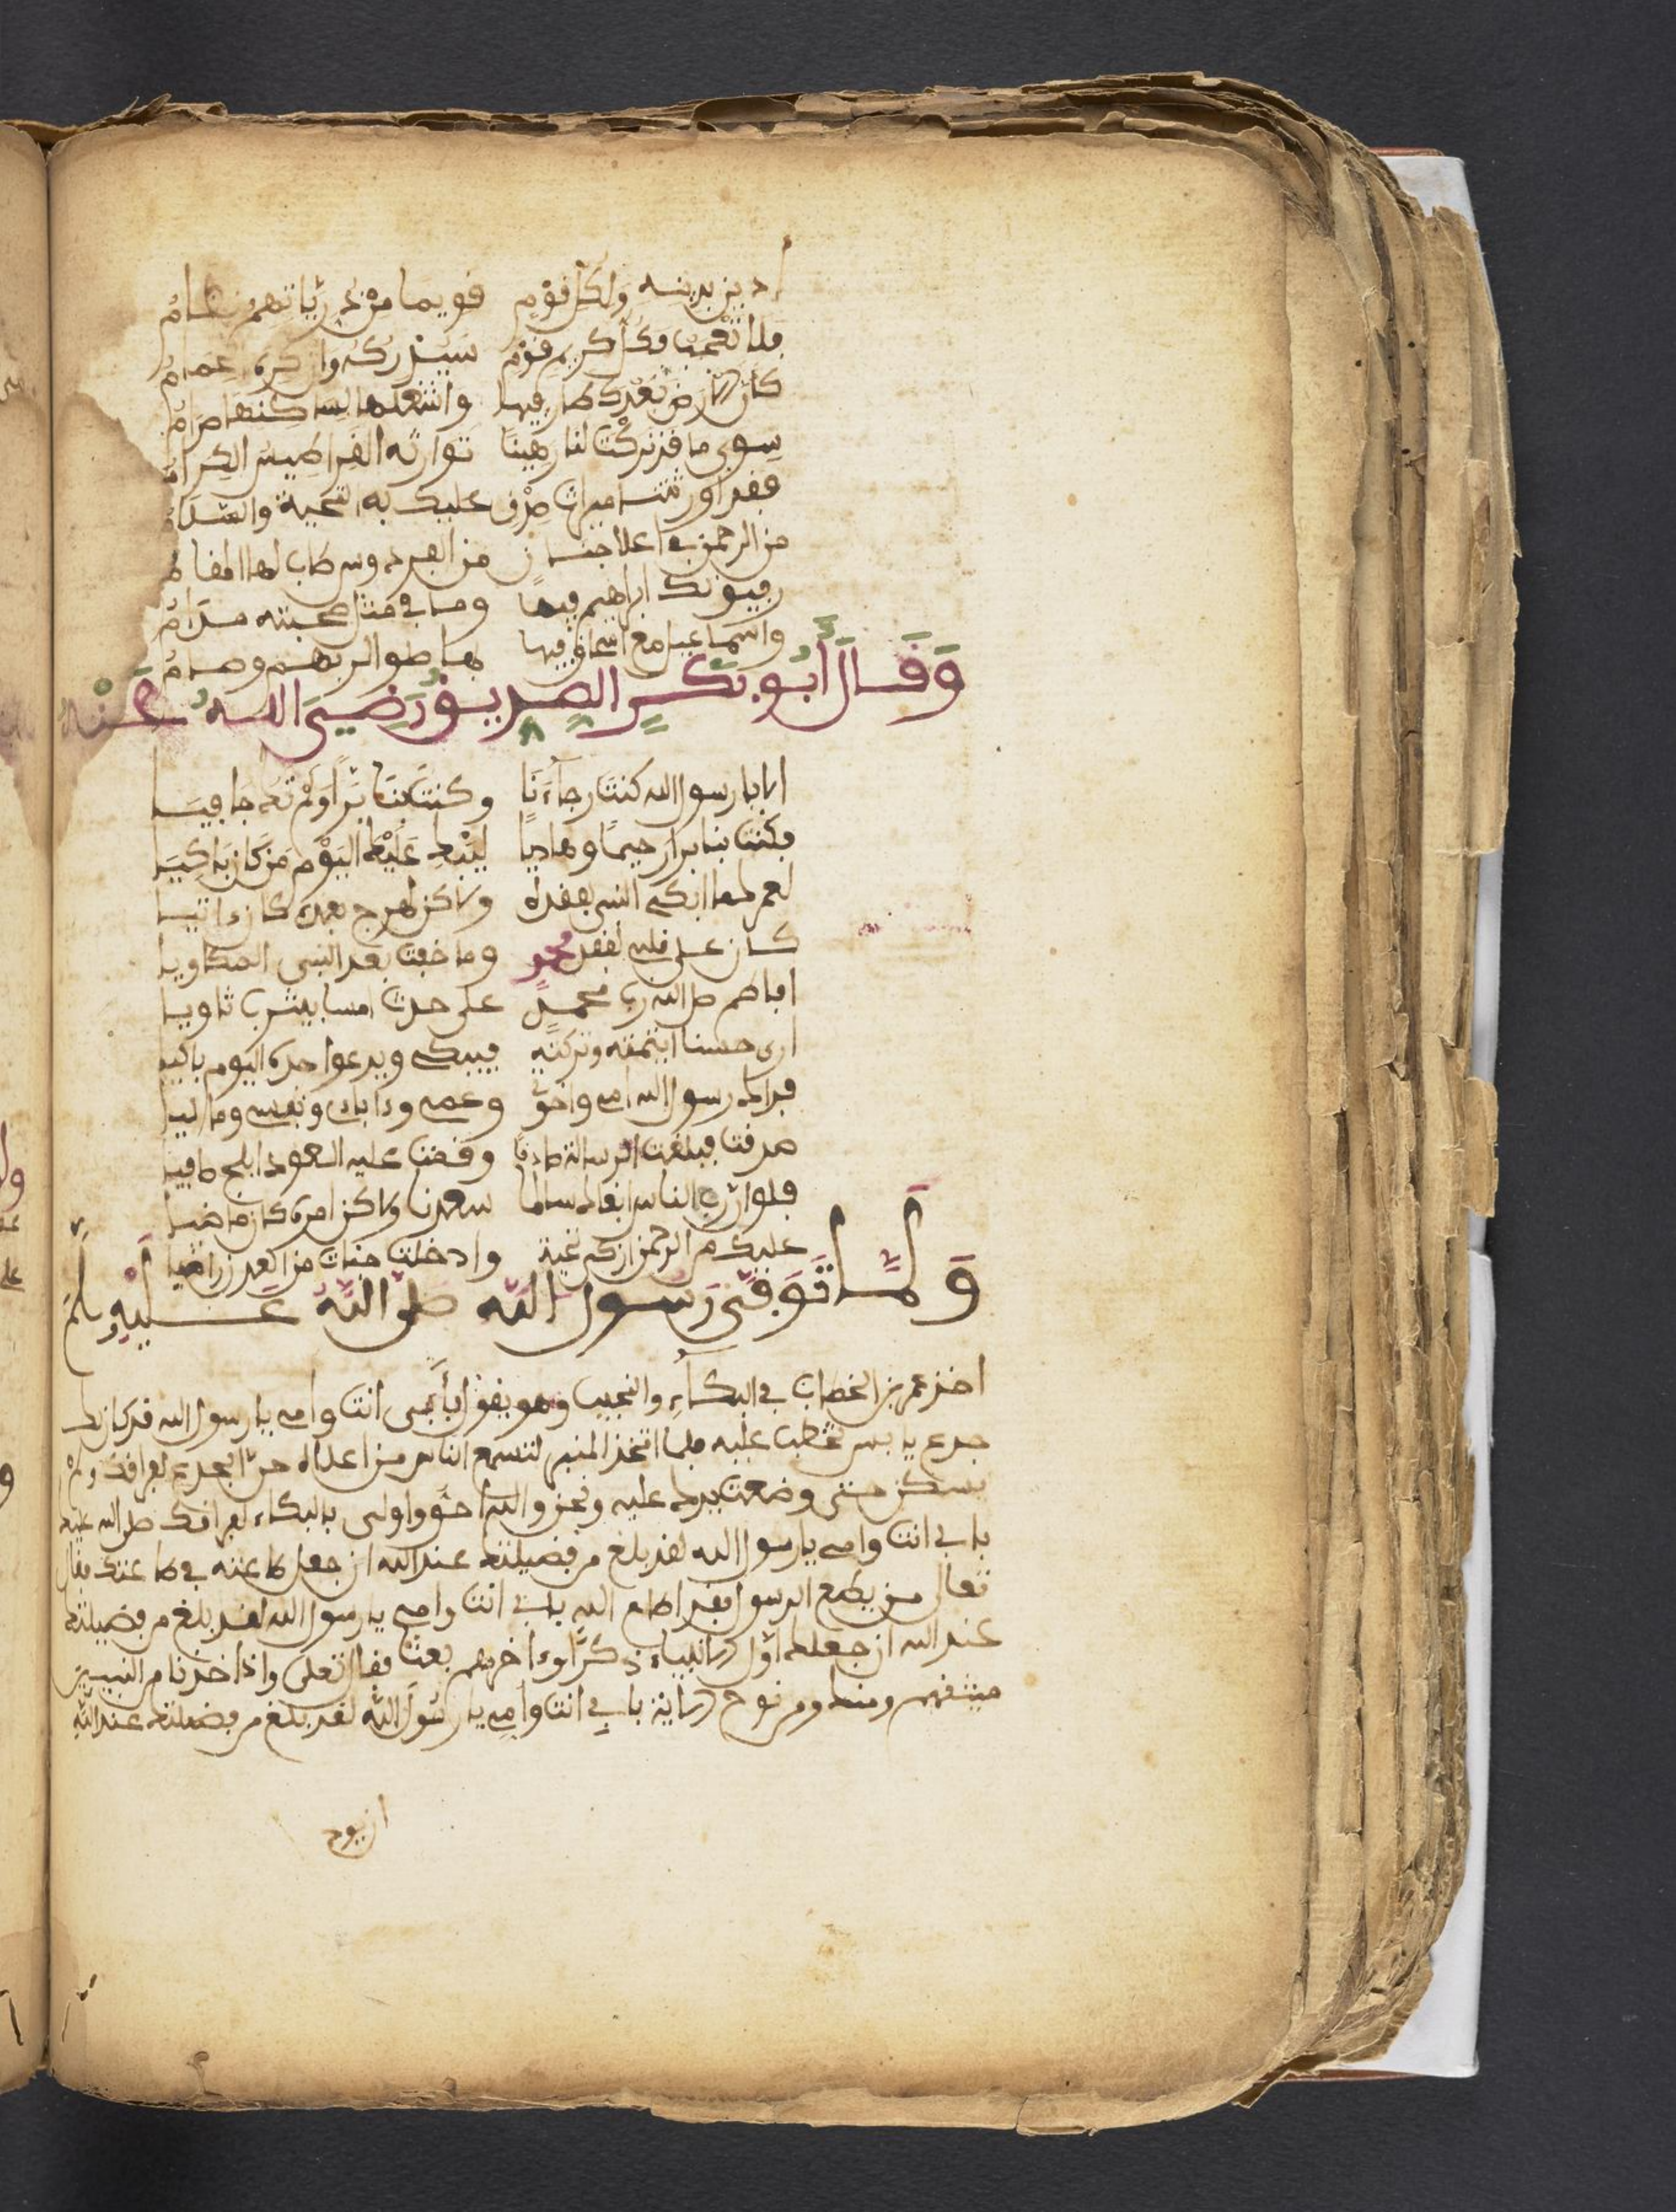 ادين بدينه ولكل قوم قويما من ديانتهم نظام
فلا تعجب فكل كريم قوم سيدركه وان كره
كأن الارض بعدك طار فيها واشعلها لساكنها ضرام
سوى ما قد تركت لنا رهينا توارثه القراطيس الكرام
فقد اورثتنا ميراث صدق عليك به التحية والسلام
من الرحمن في اعلا جنان من الفردوس طاب لها المقام
رفيق ابيك ابراهيم فيها وما في مثل صحبته
واسماعيل مع اسحاق فيها بما صلوا لربهم وصاموا
وَقَالَ أَبُو بَكْرٍ الصِّدِّيقُ رَضِيَ اللهُ عَنْهُ
الا يا رسول الله كنت رجآءَنَا وكنت بنا بَرًّا وَلَمْ تك جافيا
فكنت بنا برا رحيمًا وهاديًا ليَبْكِ عَلَيْكَ اليَوْمَ مَن كَانَ بَاكِيَا
لعمرك ما ابكي النبي لفقده ولاكن لهرج بعده كان ءاتيا
كان على قلبي لفقد محمد وما خفت بعد النبي المكاويا
افاطم صلى الله رب محمدٍ على جدث امسا بيثرب ثاويا
ارى حسنا ايتمته وتركته فيبكي ويدعوا جده اليوم باكيا
فدا لرسول الله امي وعمي ونفسي وماليا
صدقت فبلغت الرسالة صادقا
فلو ان رب الناس ابقاك سالما سعدنا ولاكن امره كان ماضيا
عليك من الرحمن ازكى تحية وادخلت جنات من العدن راضيا
وَلَمَّا تُوُفِّيَ رَسُولُ اللهِ صَلَّى اللهُ عَلَيْهِ وَسَلَّمَ
اخذ عمر بن الخطاب في البكآءِ والنحيب وهو يقول بأبي انت وامي يا رسول الله قد كان لك
جدع تخطب عليه فلما اتخذ المنبر لتسمع الناس من اعلاه حنّ الجدع لفراقك ولم
يسكن حتى وضعت يدك عليه ونحن والله احق واولى بالبكاء لفراقك صلى الله عليه
بابي انت وامي يا رسول الله لقد بلغ من فضيلتك عند الله ان جعل طاعته في طاعتك فقال
تعالى من يطع الرسول فقد اطاع الله بابي انت وامي يا رسول الله لقد بلغ من فضيلتك
عند الله ان جعلك اوّل الانبياء ذكرًا وءاخرهم بعثا فقال تعلى واذ اخذنا من النبيين
ميثقهم ومنك ومن نوح الاية بابي انت وامي يا رسول الله لقد بلغ من فضيلتك عند الله
ان يود